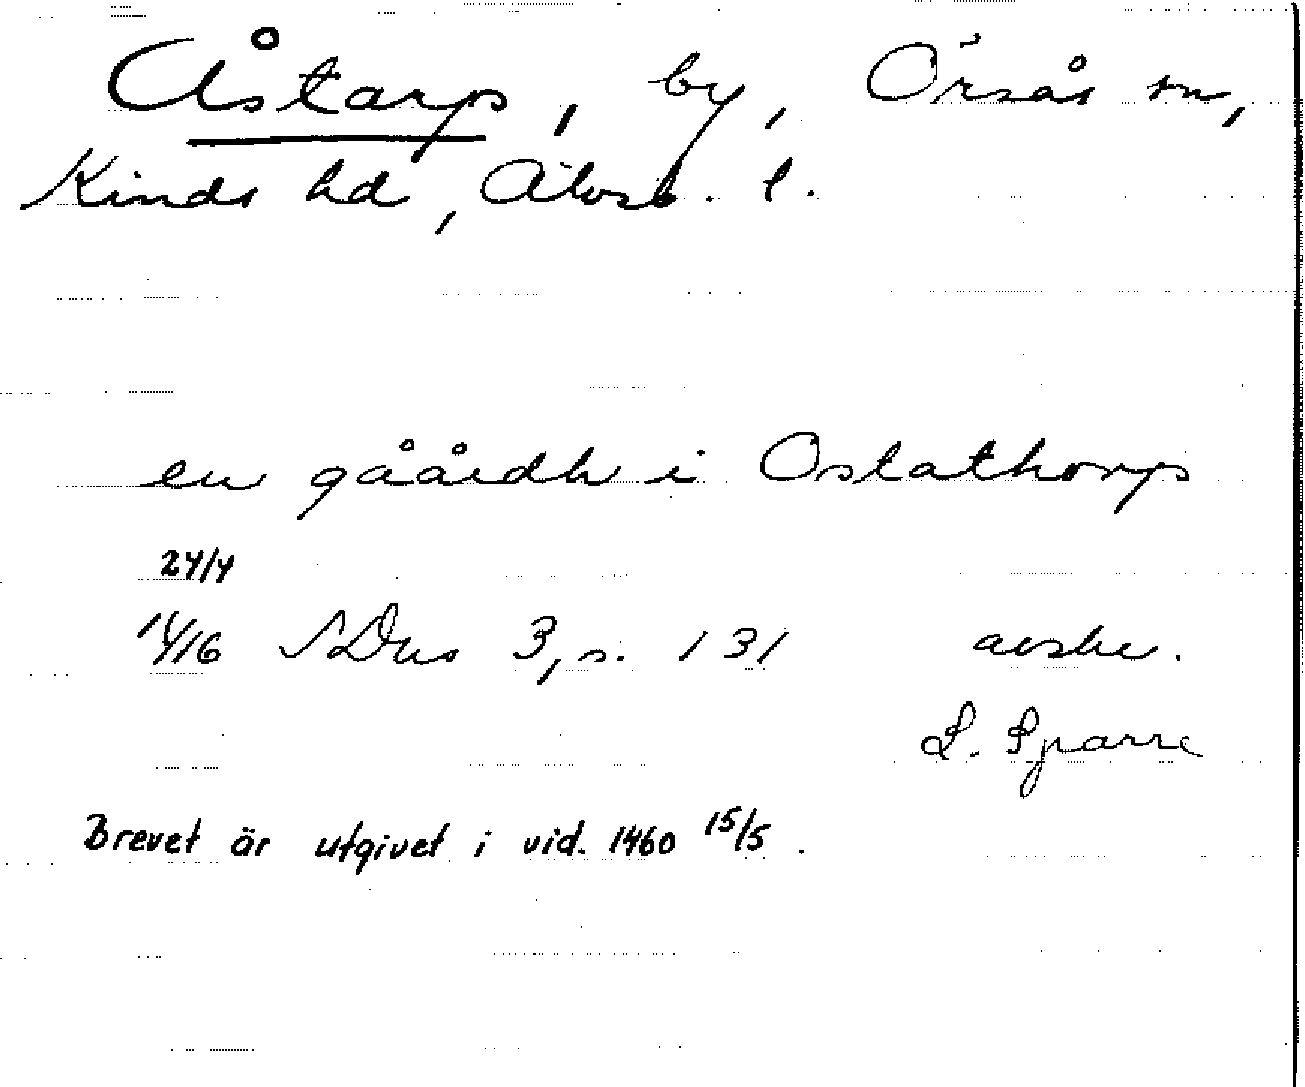 Åstarp, by, Örsås sn,
Kinds hd, Älvsb. l.
en gåårdh i Oslathorp
24/4
1416 SDns 3, s. 131 avskr.
L. Sparre
Brevet är utgivet i vid. 1460 15/5.